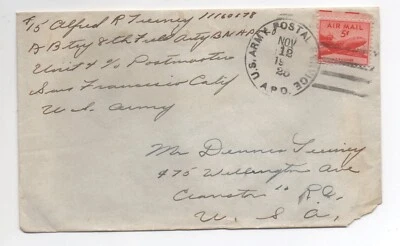 T/5 Alfred R Tierney 11160178
A Btry 8th Field Arty BN APO 25
Unit 4 % Postmaster
San Francisco Calif
U.S. Army
U.S. ARMY POSTAL SERVICE
NOV
18
A.P.O.
25
AIR MAIL
5¢
Mr Dennis Tierney
475 Wellington Ave
Cranston 10 R.I.
U. S. A.